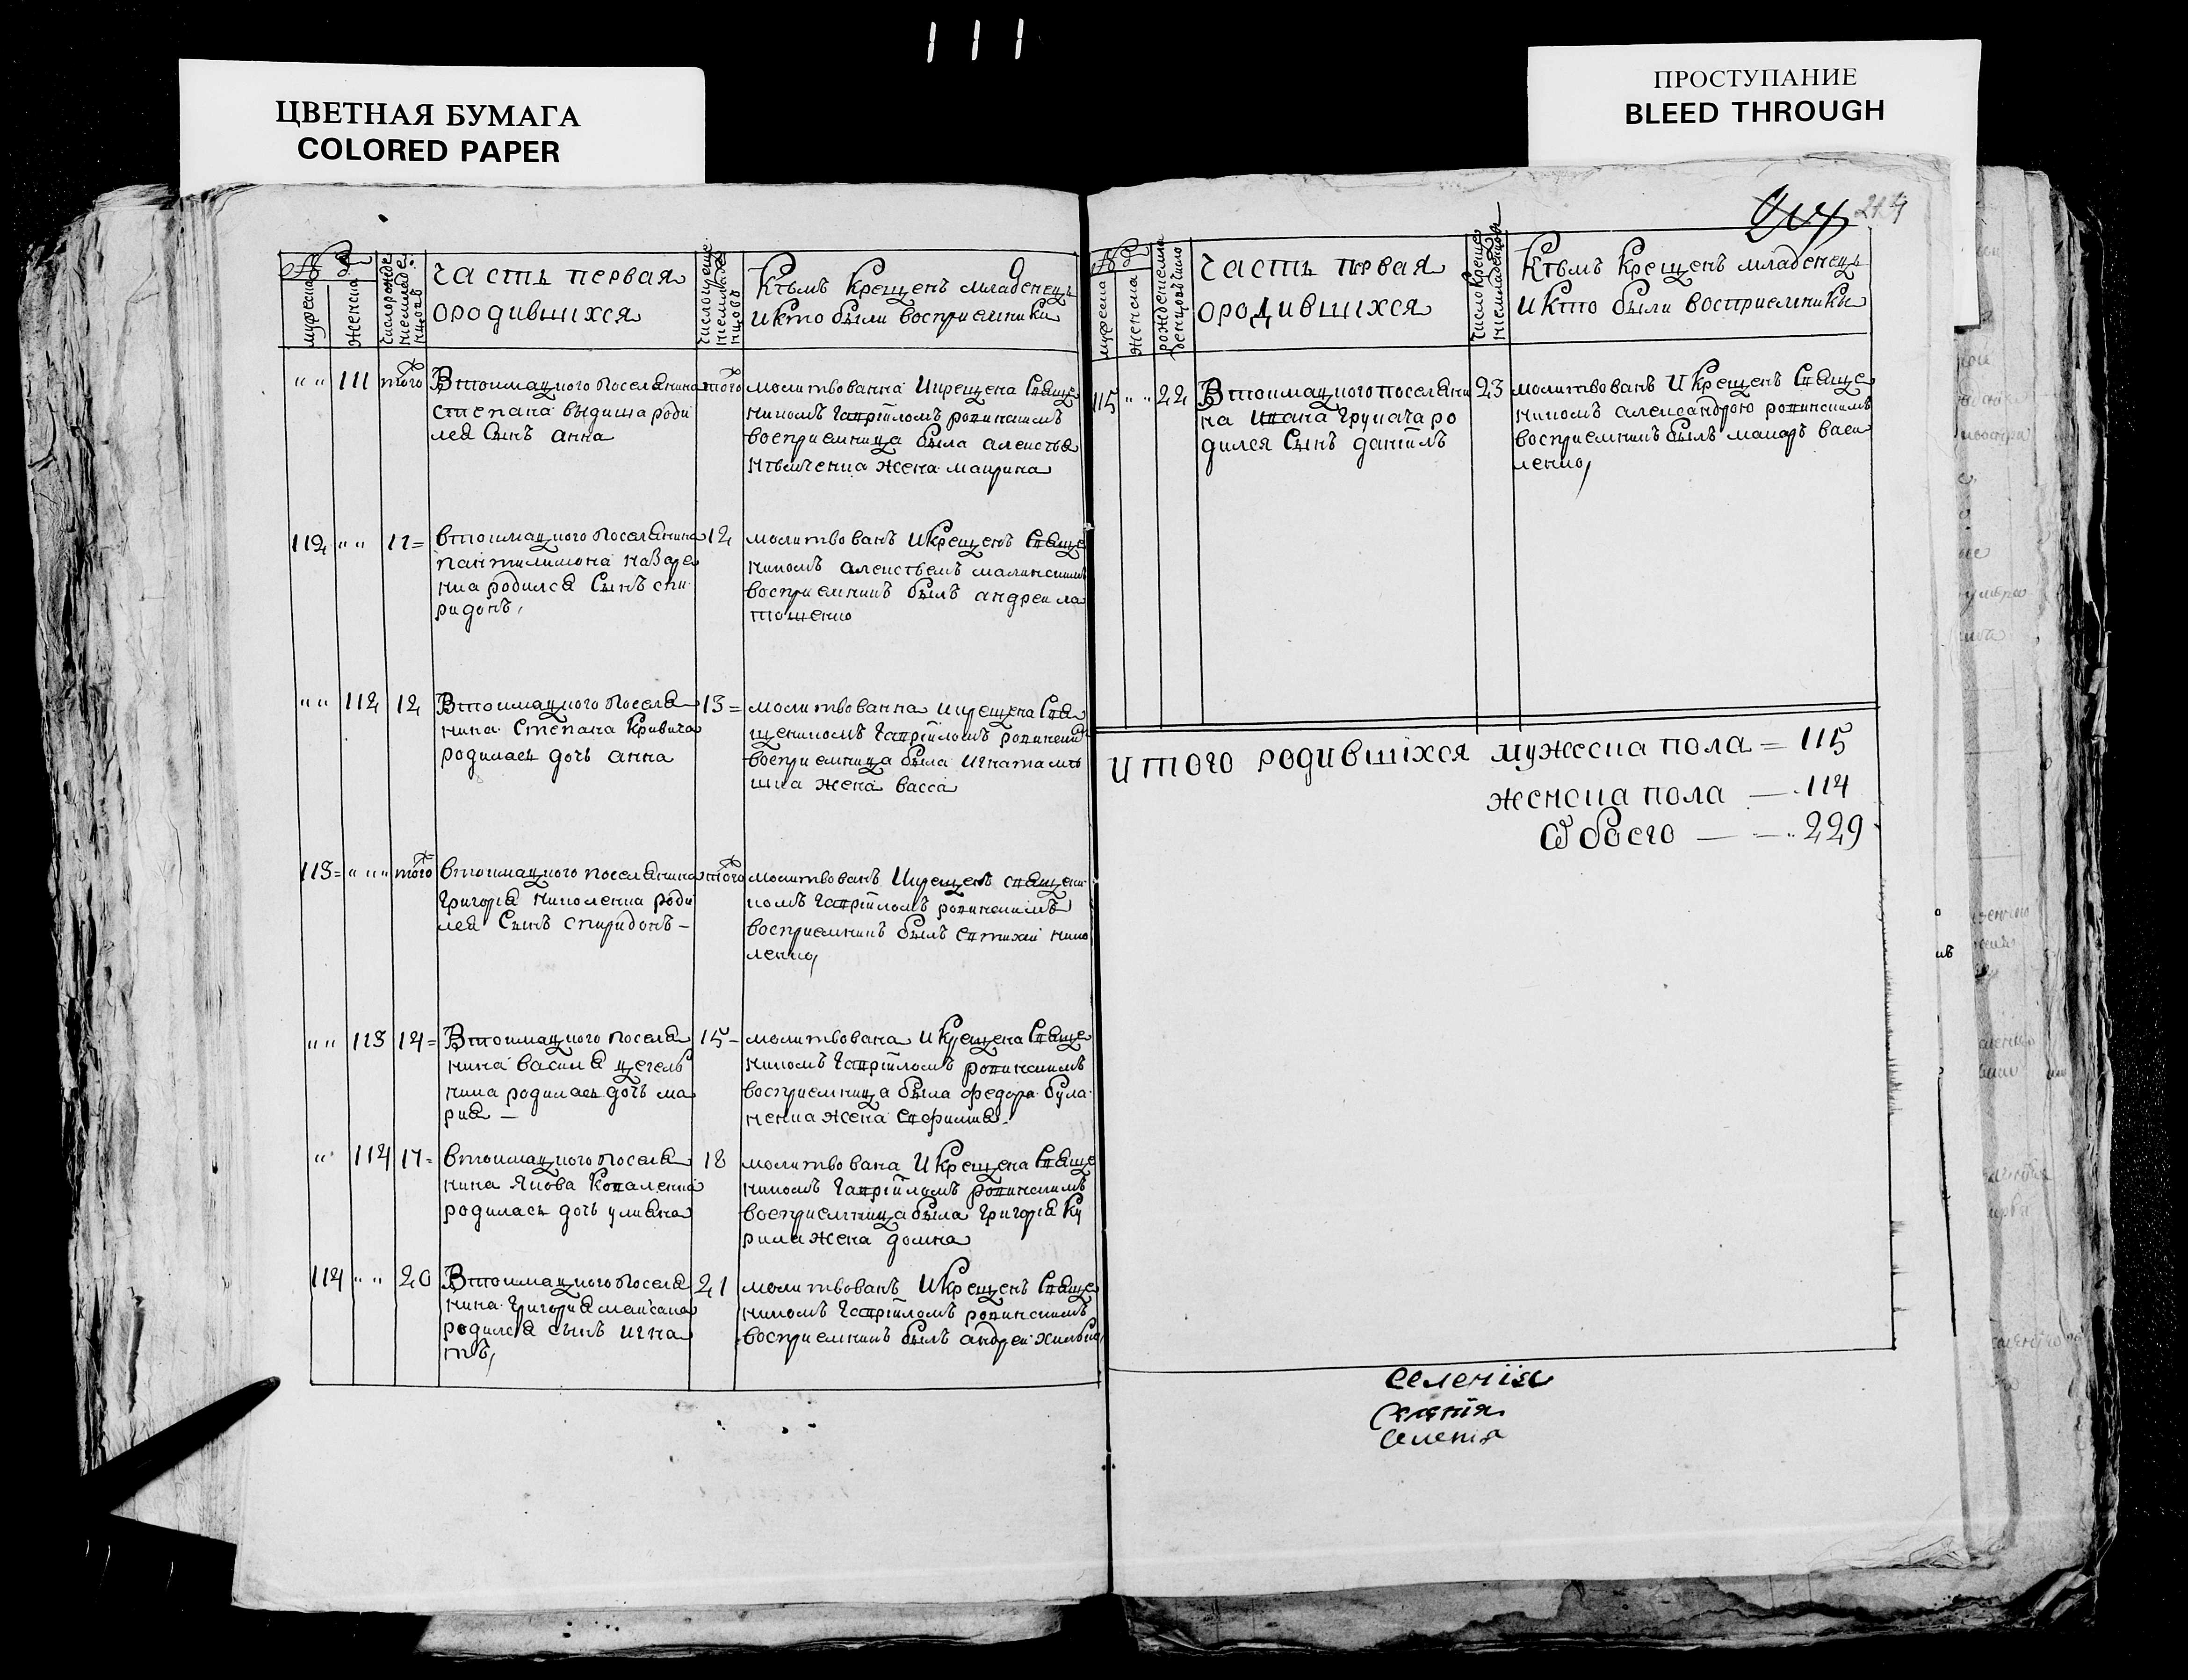 111
ЦВЕТНАЯ БУМАГА
COLORED PAPER
ПРОСТУПАНИЕ
BLEED THROUGH
мужеска
женска
число рожде
ния младе
нцовъ
часть первая
ородившихся
число креще
ния младе
нцовъ
Кѣмъ Крещенъ младенецъ
икто были восприемники
" " 111 того
Втоимацкого поселянина
степана выдиша роди
лся Сынъ анна
того
молитвованна Икрещена Свяще
никомъ гавріиломъ ровинскимъ
восприемница была алексѣя
жена маврина
112 " " 11=
втоимацкого поселянина
пантилимона назаре
нка родился Сынъ спи
ридонъ,
12
молитвованъ Икрещенъ Свяще
никомъ алексѣемъ малинскимъ
восприемникъ былъ андреи ла
тошенко
" " 112 12
Втоимацкого поселя
нина Степана Кривича
родилась дочь анна
13=
молитвованна икрещена Свя
щеникомъ гавріиломъ ровинским
восприемница была Игната
шка жена васса
113= " " того
втоимацкого поселянина
григоря николенка роди
лся Сынъ спиридонъ-
того
молитвованъ Икрещенъ священи
комъ гавріиломъ ровинскимъ
восприемникъ былъ евтихии нико
ленко,
" " 113 14=
Втоимацкого поселя
нина василя цегель
ника родилась дочь ма
рия -
15-
молитвована Икрещена Свяще
никомъ гавріиломъ ровинскимъ
восприемница была федора була
ненка жена евфимия.
" 114 17-
втоимацкого поселя
нина якова коваленка
родилась дочь улияна
18
молитвована Икрещена Свяще
никомъ гавріиломъ ровинскимъ
восприемница была григоря Ку
рила жена домна
114 " " 20
Втоимацкого поселя
нина григория маисана
родился сынъ игна
тъ,
21
молитвованъ Икрещенъ Свяще
никомъ гавріиломъ ровинскимъ
восприемникъ былъ андреи
мужеска
женска
часть первая
ородившихся
число креще
ния младенцовъ
Кѣмъ Крещенъ младенецъ
икто были восприемники
115 " " 22
Втоимацкого поселяни
на Ивана грукача ро
дился Сынъ даніилъ
23
молитвованъ Икрещенъ Свяще
никомъ александрою ровинскимъ
восприемникъ былъ макаръ васи
ленко,
Итого родившихся мужеска пола = 115
женска пола — 114
Обоего — — 229
селенія
Селенія
селенія